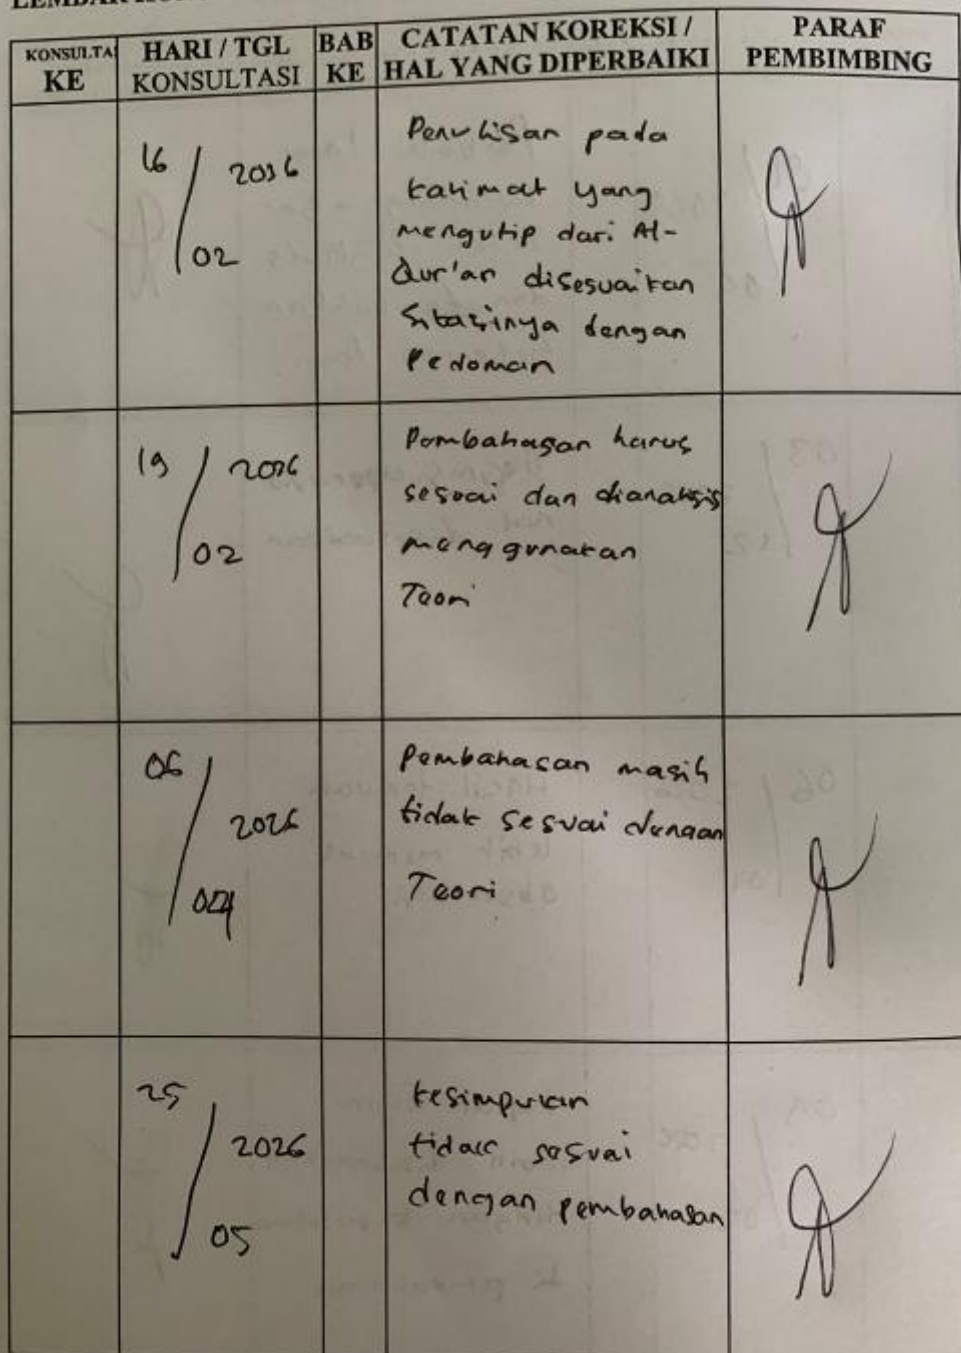 KONSULTA
KE
HARI / TGL
KONSULTASI
BAB
KE
CATATAN KOREKSI /
HAL YANG DIPERBAIKI
PARAF
PEMBIMBING
16 / 02 2026
Penulisan pada
kalimat yang
mengutip dari Al-
Qur'an disesuaikan
Sitasinya dengan
Pedoman
19 / 02 2026
Pembahasan harus
sesuai dan dianalisis
menggunakan
Teori
06 / 04 2026
Pembahasan masih
tidak sesuai dengan
Teori
25 / 05 2026
kesimpulan
tidak sesuai
dengan pembahasan